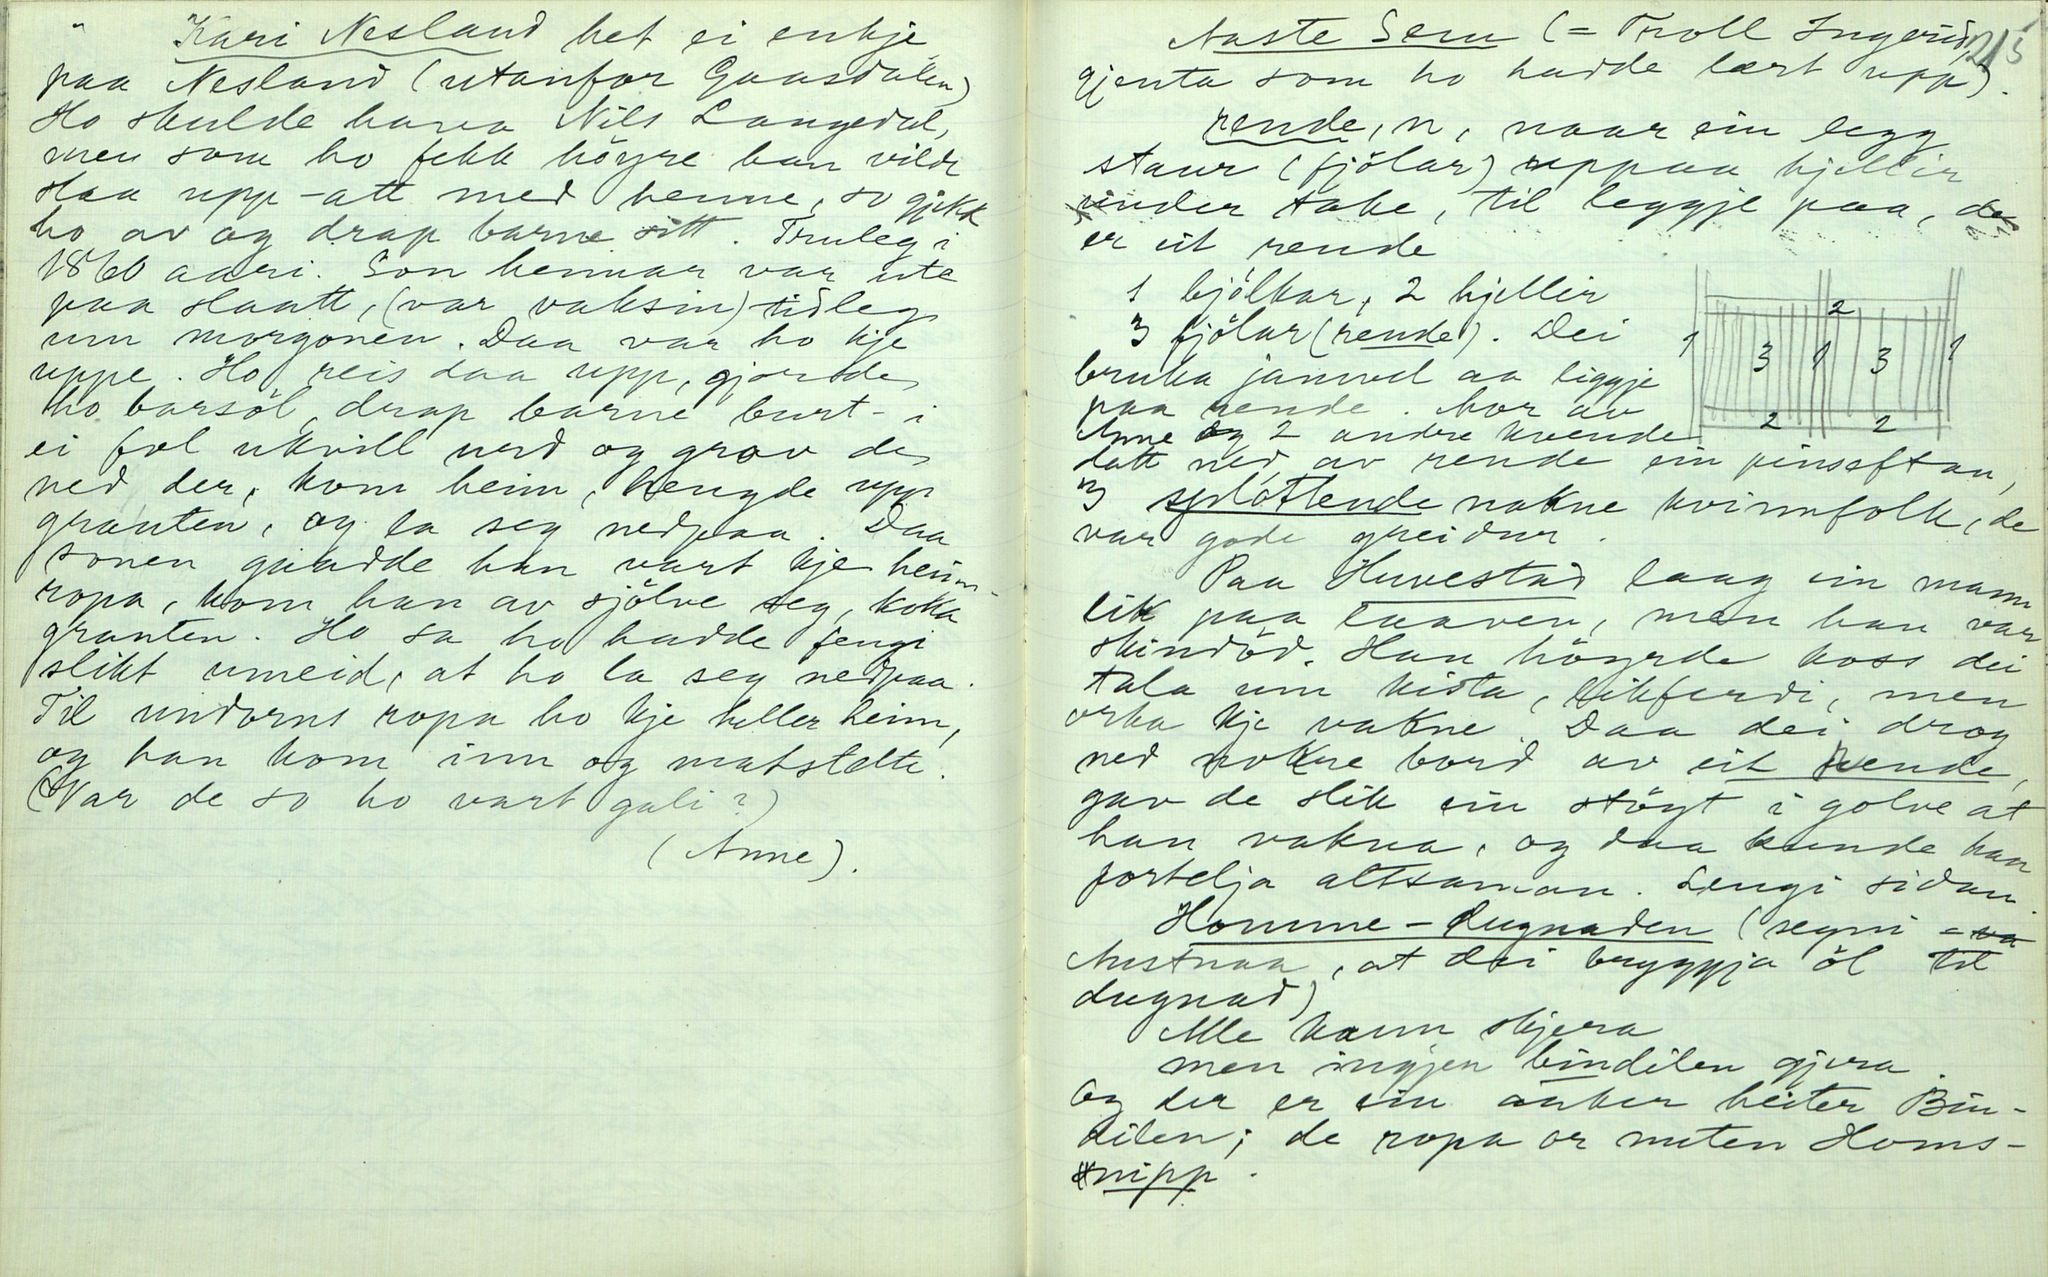 Kari Nesland het ei enkje
paa Nesland (utanfor Gaasdalen)
Ho skulde hava Nils Langedal,
men som ho fekk höyre han vilde
slaa upp-att med henne, so gjekk
ho av og drap barne sitt. Truleg i
1860 aari. Son hennar var ute
paa slaatt, (var vaksin) tidleg
um morgonen. Daa var ho kje
uppe. Ho reis daa upp, gjorde
ho barsöl, drap barne burt-i
ei fol ukvill urd og grov de
ned der, kom heim, hengde upp
grauten, og la seg nedpaa. Daa
sonen gaadde han vart kje heim-
ropa, kom han av sjölve seg, koka
grauten. Ho sa ho hadde fengi
slikt umeid, at ho la seg nedpaa.
Til undorns ropa ho kje heller heim,
og han kom inn og matstelte.
(Var de so ho vart gali?)
(Anne).
215
Aaste Sem (= Troll Ingerid,
gjenta som ho hadde lært upp).
rende, n, naar ein legg
staur (fjölar) uppaa hjellir
under take, til leggje paa, de
er eit rende
1 bjölkar, 2 hjellir
3 fjölar (rende). Dei
bruka jamvel aa liggje
paa rende. Mor av
Anne og 2 andre kvende
datt ned av rende ein pinseftan,
3 splottende nakne kvinnfolk, de
var gode greidur.
2
1 3 1 3 1
2 2
Paa Huvestad laag ein mann
lik paa laaven, men han var
skindöd. Han höyrde koss dei
tala um kista, likferdi, men
orka kje vakne. Daa dei drog
ned nokre bord av eit rende,
gav de slik ein stöyt i golve at
han vakna, og daa kunde han
fortelja altsaman. Lengi sidan.
Homme-dugnaden (segni =
Austnaa, at dei bryggja öl til
dugnad)
Alle kann skjera
men ingjen bindilen gjera
Og der er ein aaker heiter Bin-
dilen; de ropa or nuten Homs-
nipp.